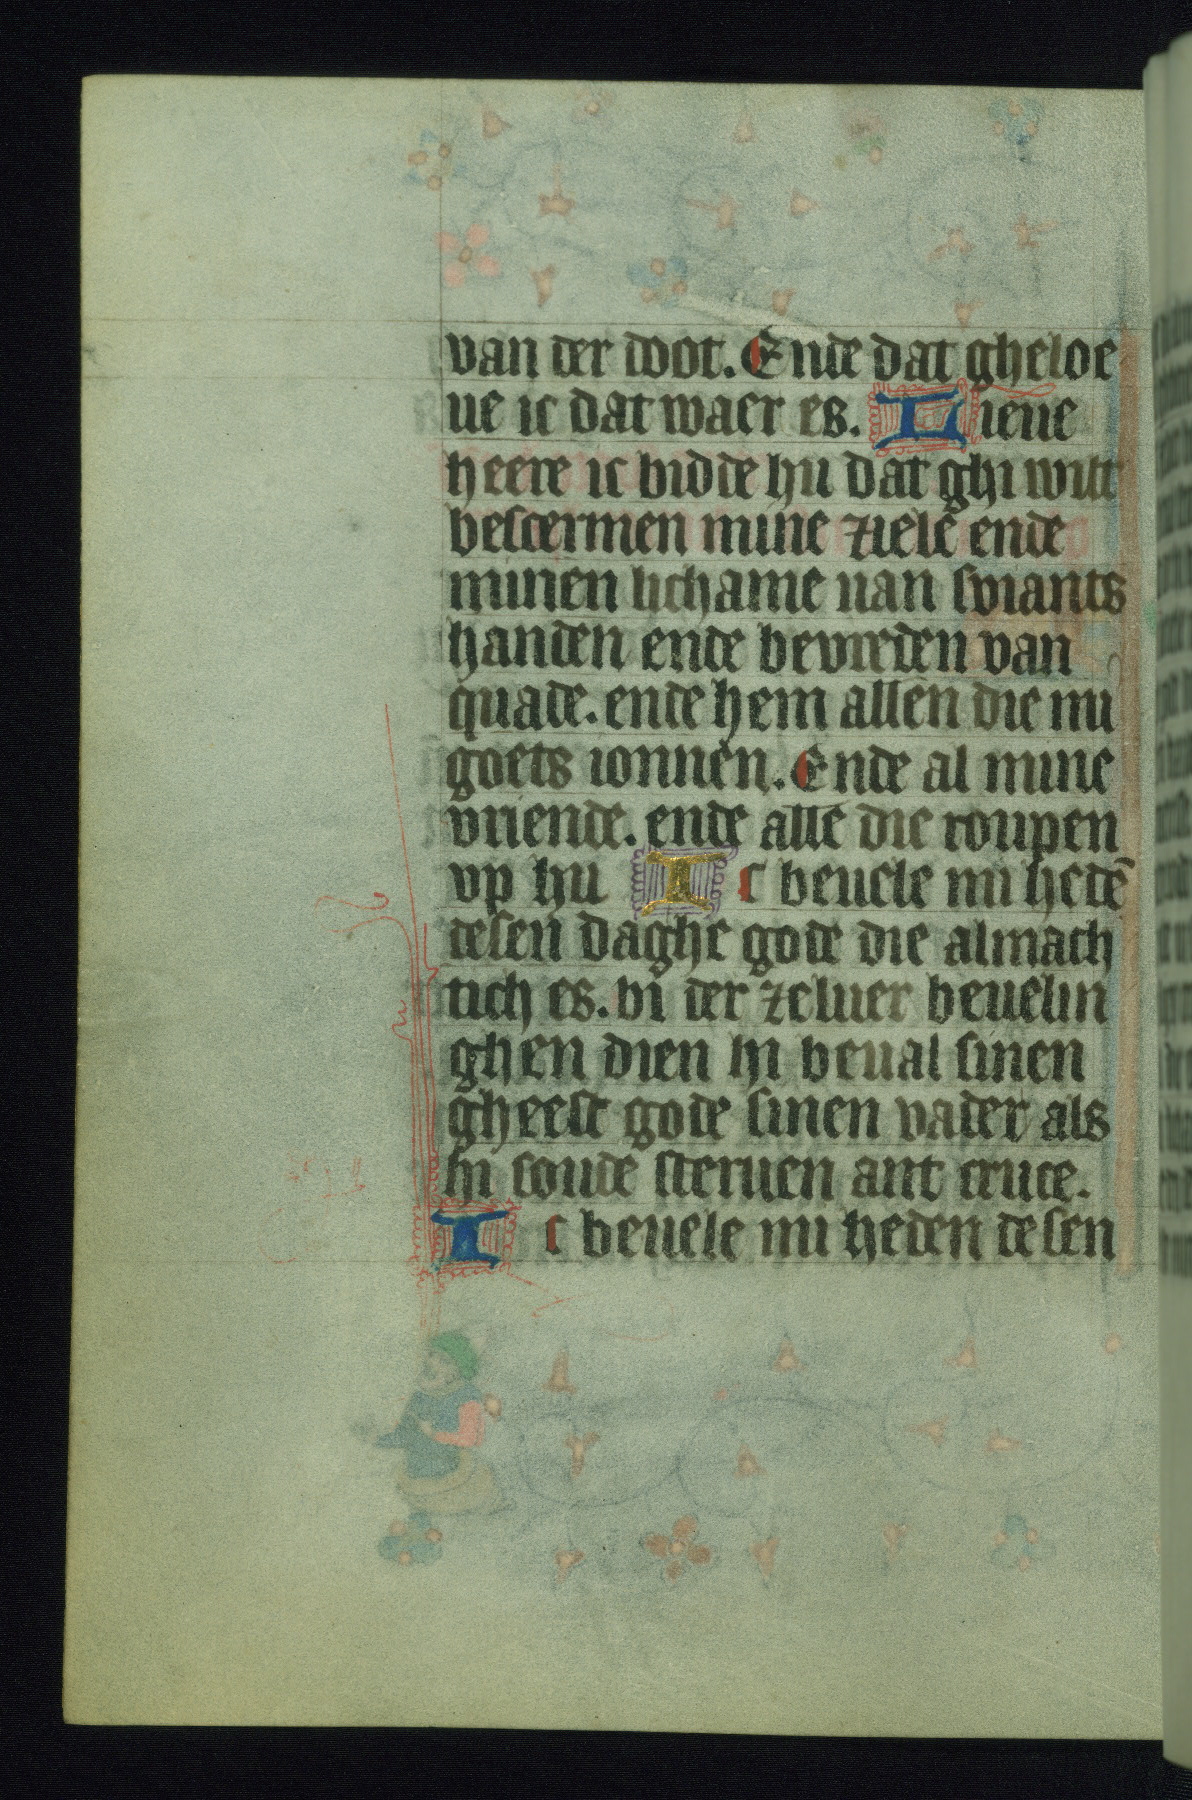 van der doot. Ende dat gheloe
ue ic dat waer es. Lieue
heere ic bidde hu dat ghi wilt
bescermen mine zielē ende
minen lichame uan sviants
handen ende bevreden van
quade. ende hem allen die mi
goets ionnen. Ende al mine
vriende. ende alle die roupen
vp hu Ic beuele mi hedē
desen daghe gode die almach
tich es. bi der zeluer beuelin
ghen dien hi beual sinen
gheest gode sinen vader als
hi soude steruen ant cruce.
Ic beuele mi heden desen